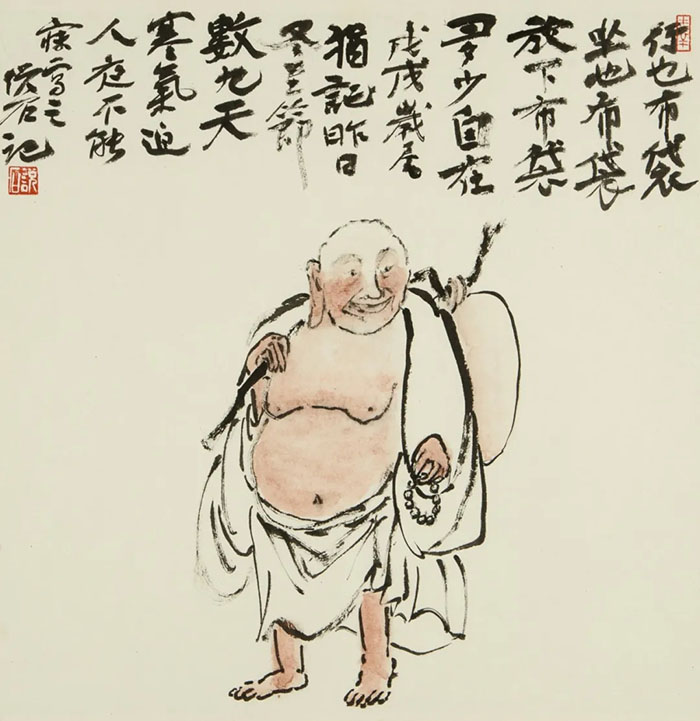 行也布袋
坐也布袋
放下布袋
多少自在
戊戌歲
猶記昨日
冬至節
數九天
寒氣迫
人夜不能
寐寫之
石記